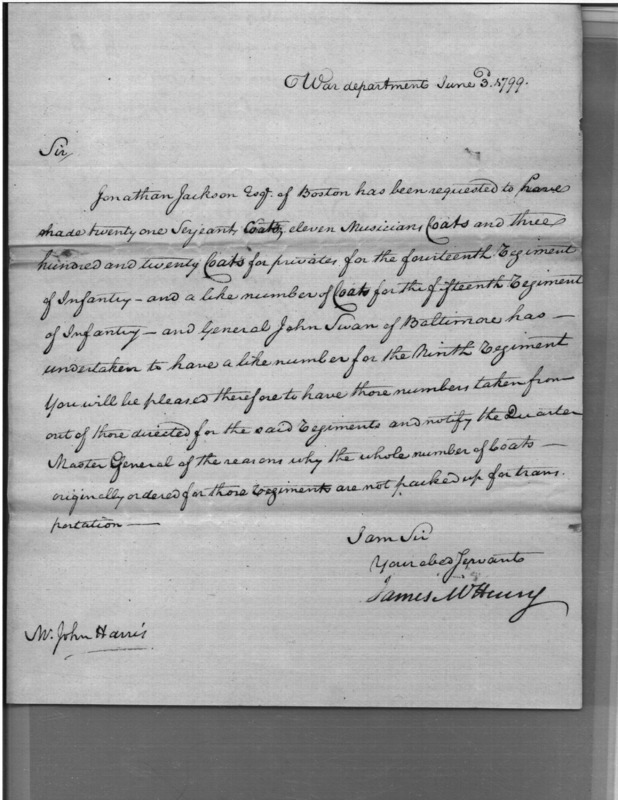 War department June 3d. 1799.
Sir,
Jonathan Jackson Esqr. of Boston has been requested to have
made twenty one Serjeants Coats, eleven Musicians Coats and three
hundred and twenty Coats for privates for the fourteenth Regiment
of Infantry — and a like number of Coats for the fifteenth Regiment
of Infantry — and General John Swan of Baltimore has —
undertaken to have a like number for the Ninth Regiment
You will be pleased therefore to have those numbers taken from
out of those directed for the said Regiments and notify the Quarter
Master General of the reasons why the whole number of Coats —
originally ordered for those Regiments are not packed up for trans.
portation —
I am Sir
Your obed Servant
James McHenry
Mr. John Harris